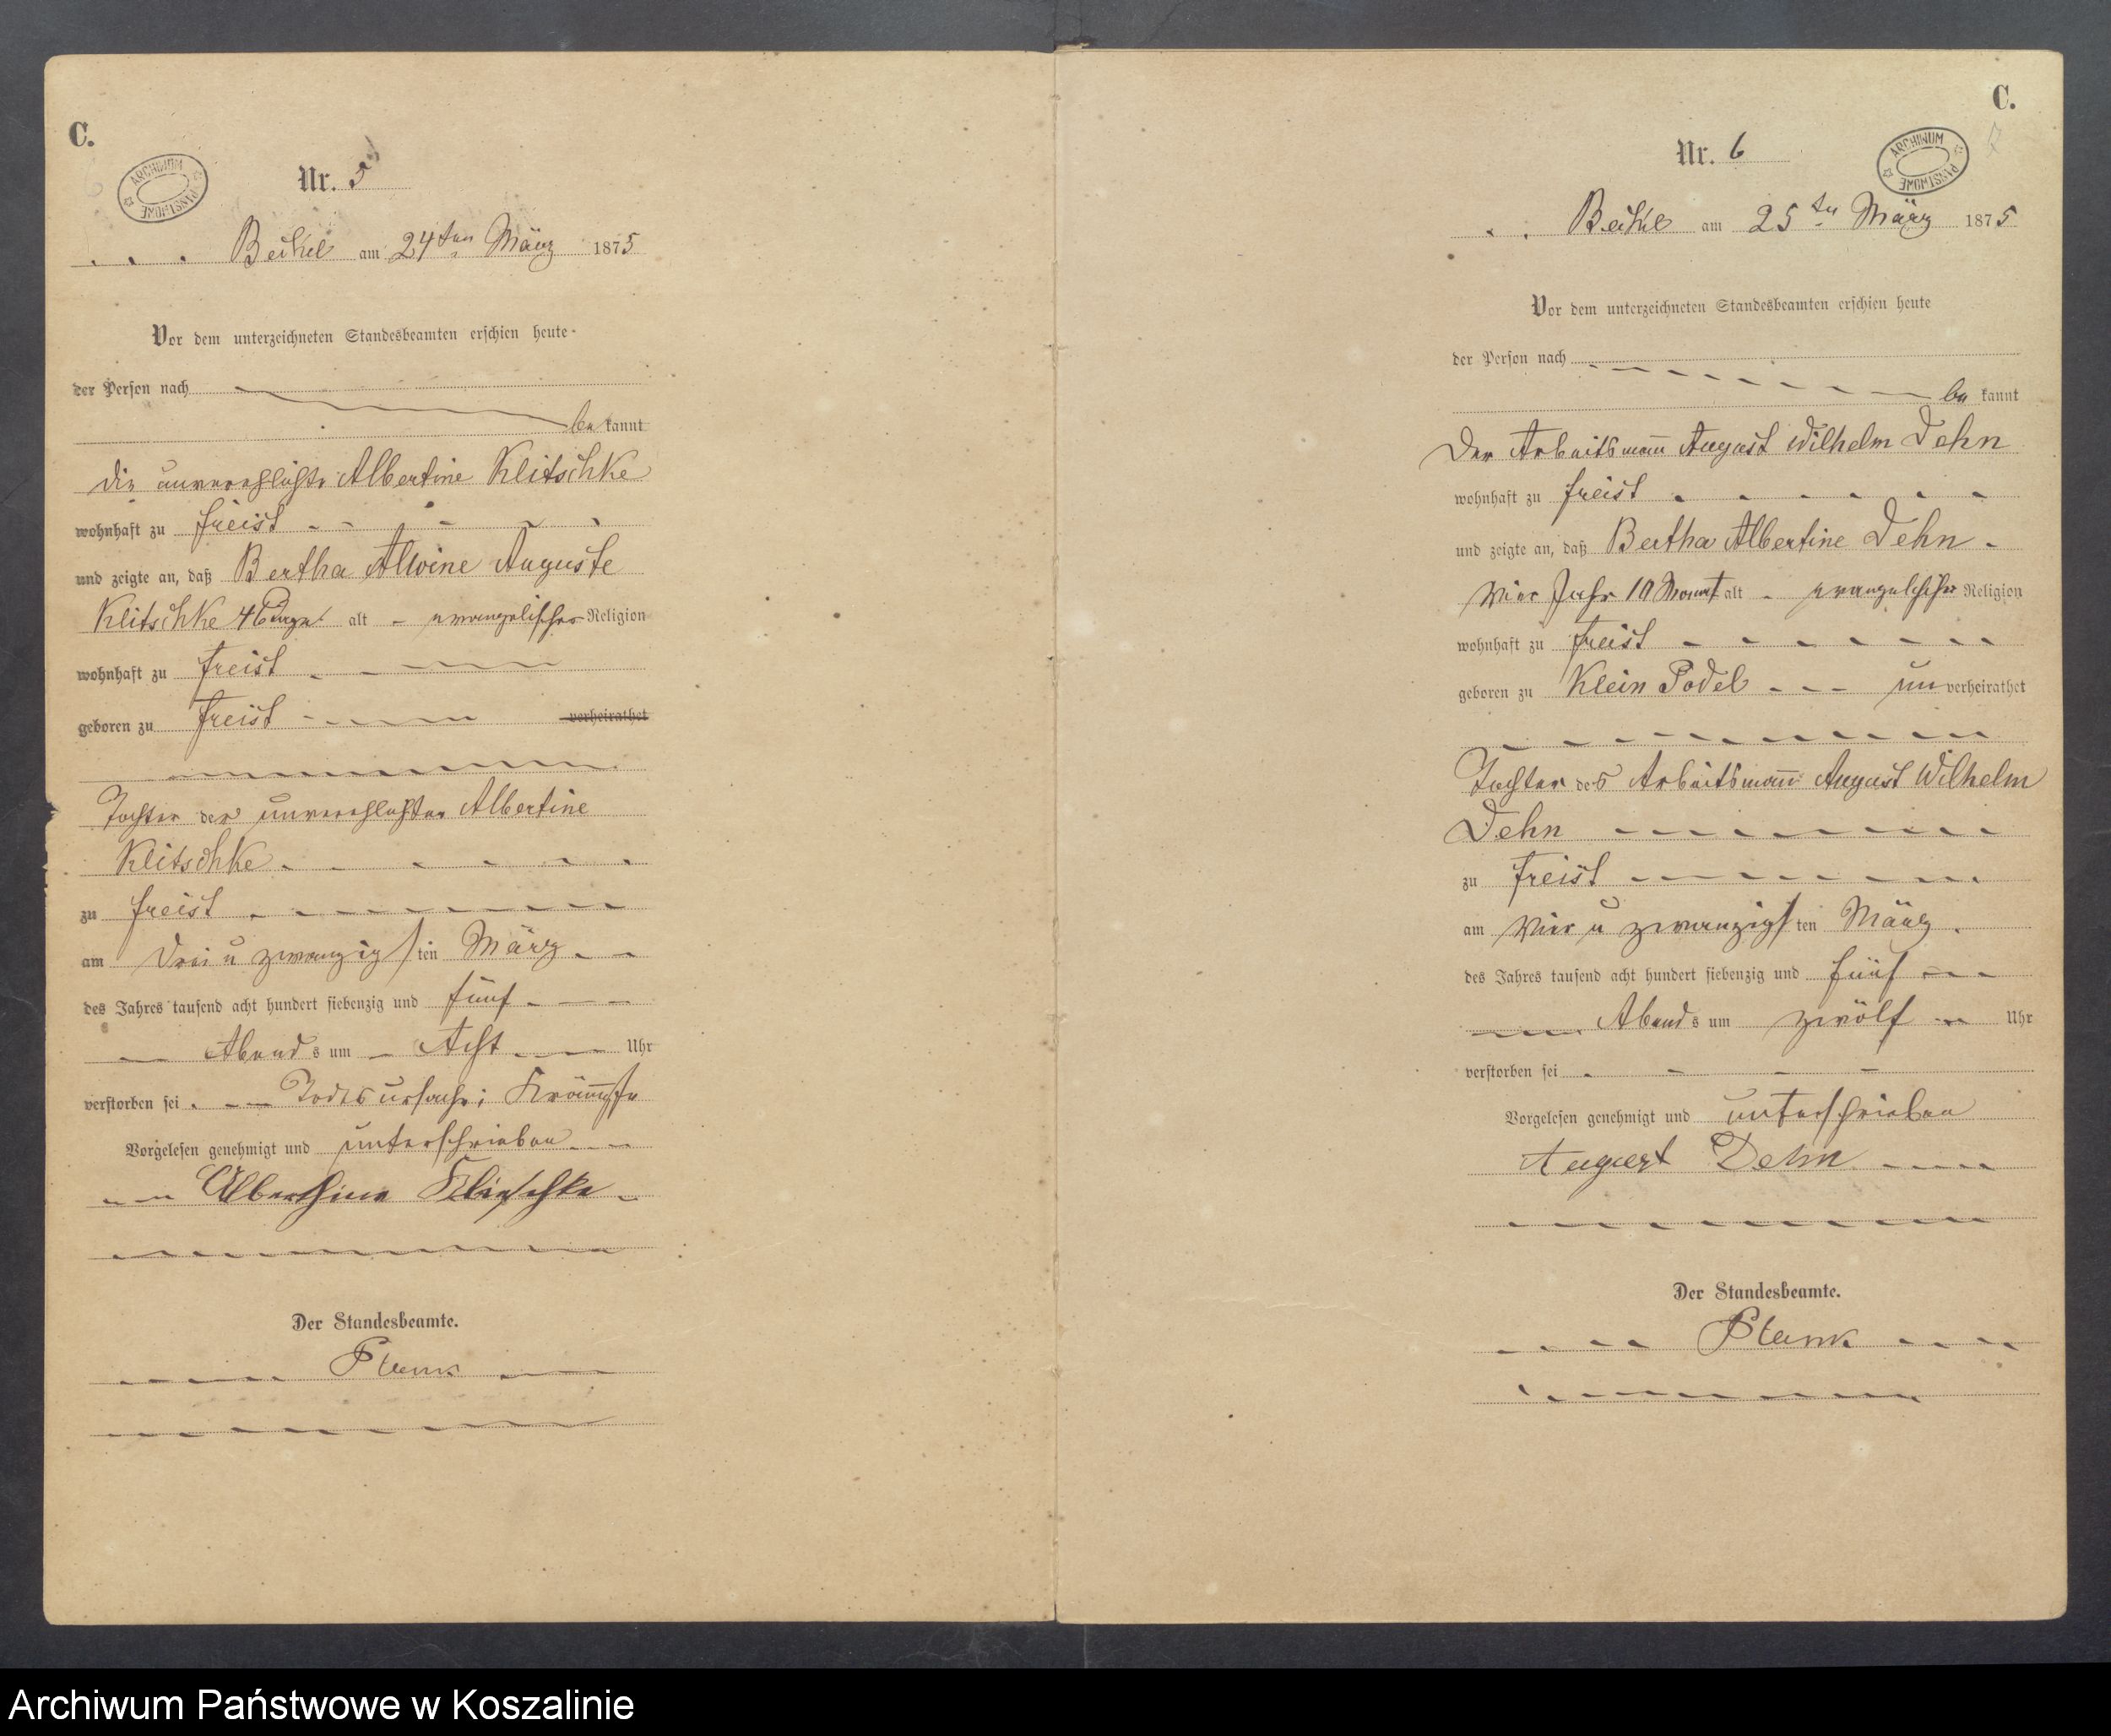 C.
ARCHIWUM PAŃSTWOWE
Nr. 5
Beckel am 24ten März 1875
Vor dem unterzeichneten Standesbeamten erschien heute
der Person nach
be kannt
die unverehlichte Albertine Klitschke
wohnhaft zu Freist
und zeigte an, daß Bertha Alwine Auguste
Klitschke 46 Tage alt evangelischer Religion
wohnhaft zu Freist
geboren zu Freist verheirathet
Tochter der unverehlichten Albertine
Klitschke
zu Freist
am Drei u zwanzigsten März
des Jahres tausend acht hundert siebenzig und fünf
Abends um Acht Uhr
verstorben sei Todesursache: Krämpfe
Vorgelesen genehmigt und unterschrieben
Alberthine Klitschke
Der Standesbeamte.
C.
ARCHIWUM PAŃSTWOWE
Nr. 6
am 25ten März 1875
Vor dem unterzeichneten Standesbeamten erschien heute
der Person nach
be kannt
Der Arbeitsmann August Wilhelm Dehn
wohnhaft zu Freist
und zeigte an, daß Bertha Albertine Dehn
Vier Jahr 10 Monat alt evangelischer Religion
wohnhaft zu Freist
geboren zu Klein Podel un verheirathet
Tochter des Arbeitsmann August Wilhelm
Dehn
zu Freist
am Vier u zwanzigsten März
des Jahres tausend acht hundert siebenzig und fünf
Abends um zwölf Uhr
verstorben sei
Vorgelesen genehmigt und unterschrieben
August Dehn
Der Standesbeamte.
Archiwum Państwowe w Koszalinie